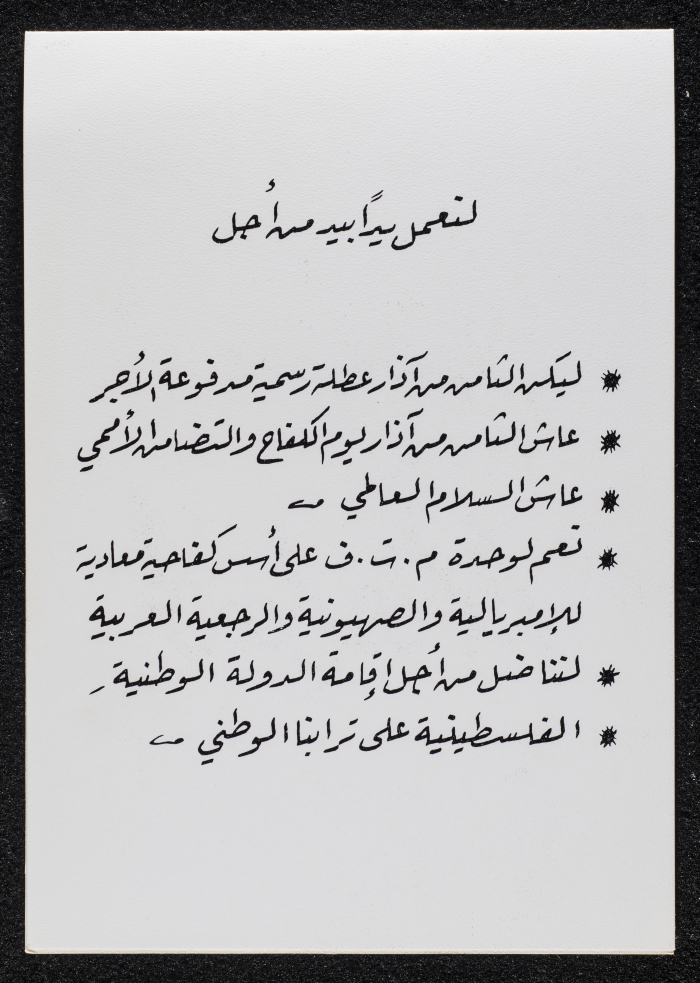 لنعمل يدًا بيد من أجل
* ليكن الثامن من آذار عطلة رسمية مدفوعة الأجر
* عاش الثامن من آذار يوم الكفاح والتضامن الأممي
* عاش السلام العالمي
* نعم لوحدة م.ت.ف على أسس كفاحية معادية
للإمبريالية والصهيونية والرجعية العربية
* لنناضل من أجل إقامة الدولة الوطنية
* الفلسطينية على ترابنا الوطني